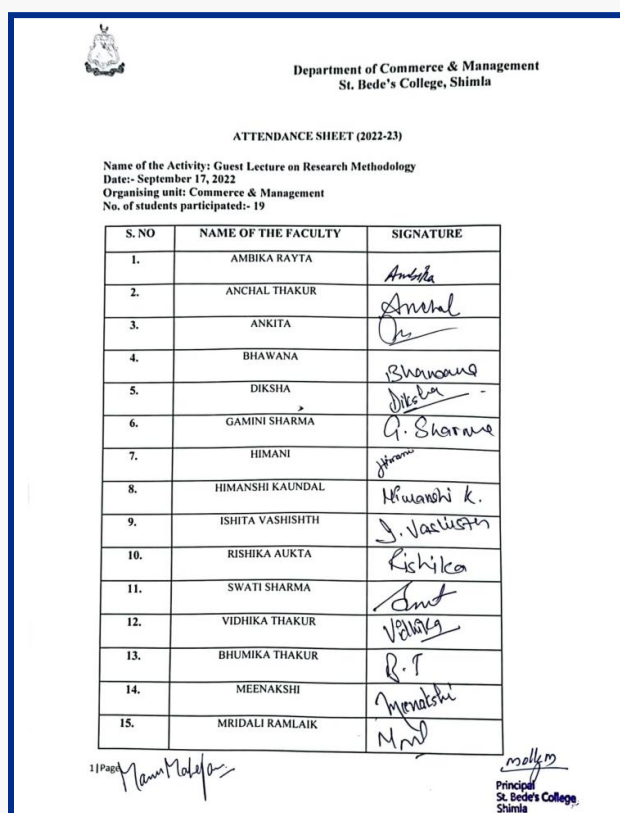 Department of Commerce & Management
St. Bede's College, Shimla
ATTENDANCE SHEET (2022-23)
Name of the Activity: Guest Lecture on Research Methodology
Date:- September 17, 2022
Organising unit: Commerce & Management
No. of students participated:- 19
S. NO NAME OF THE FACULTY SIGNATURE
1. AMBIKA RAYTA Ambika
2. ANCHAL THAKUR Anchal
3. ANKITA
4. BHAWANA Bhawana
5. DIKSHA Diksha
6. GAMINI SHARMA G. Sharma
7. HIMANI Himani
8. HIMANSHI KAUNDAL Himanshi K.
9. ISHITA VASHISHTH I. Vashisth
10. RISHIKA AUKTA Rishika
11. SWATI SHARMA
12. VIDHIKA THAKUR Vidhika
13. BHUMIKA THAKUR B.T
14. MEENAKSHI Meenakshi
15. MRIDALI RAMLAIK
1|Page
Principal
St. Bede's College,
Shimla